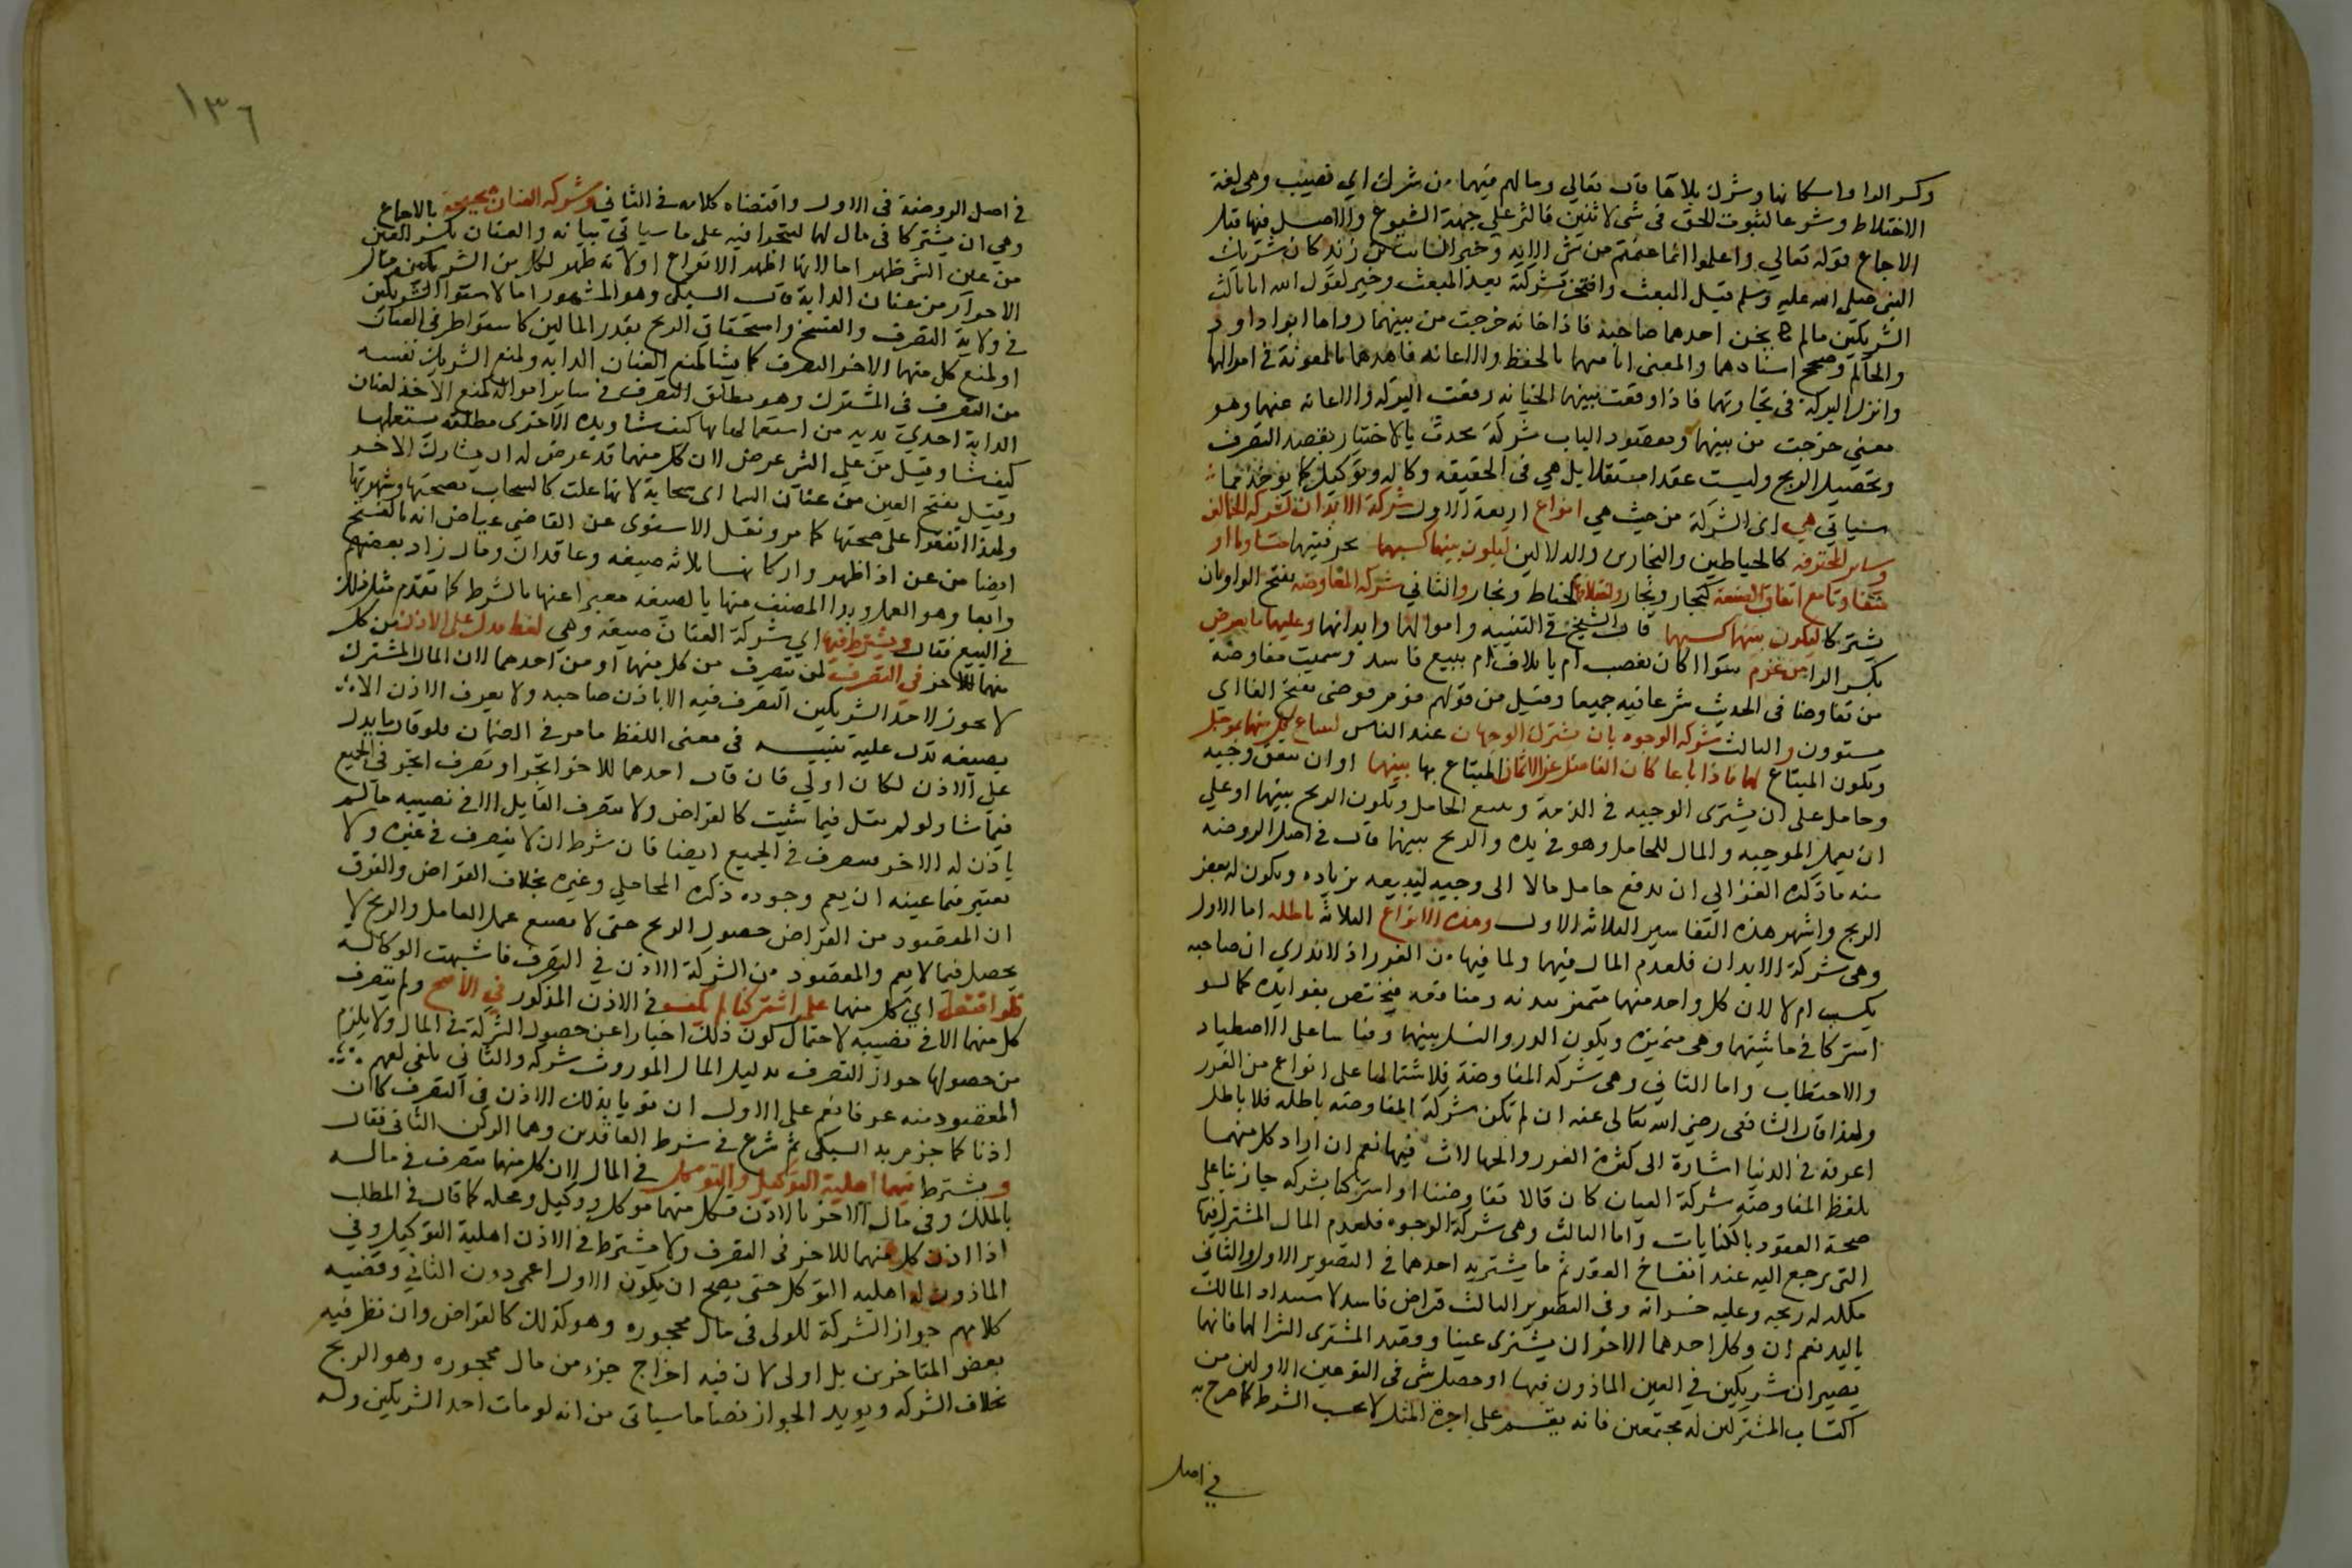 وكسر الراء واسكانها وشرك بلا هاء قال تعالى ومالهم فيهما من شرك اي نصيب وهي لغة
الاختلاط وشرعا ثبوت الحق في شي لاثنين فاكثر على جهة الشيوع والاصل فيها قبل
الاجماع قوله تعالى واعلموا انما غنمتم من شي الاية وخبر السايب بن زيد كان شريك
النبي صلى الله عليه وسلم قبل المبعث وافتخر بشركته بعد المبعث وخبر يقول الله انا ثالث
الشريكين مالم يخن احدهما صاحبه فاذا خانه خرجت من بينهما رواهما ابو داود
والحاكم وصحح اسنادهما والمعنى انا معهما بالحفظ والاعانه فامدهما بالمعونة في اموالهما
وانزل البركة في تجارتهما فاذا وقعت بينهما الخيانه رفعت البركه والاعانه عنهما وهو
معنى خرجت من بينهما ومقصود الباب شركة تحدث بالاختيار بقصد التصرف
وتحصيل الربح وليست عقدا مستقلا بل هي في الحقيقه وكاله وتوكيل كما يوخذ مما
سياتي هي اى الشركة من حيث هي انواع اربعة الاول شركة الابدان كشركة الحمالين
وساير المحترفه كالخياطين والنجارين والدلالين ليكون بينهما كسبهما بحرفتيهما متساويا او
متفاوتا مع اتفاق الصنعة كنجار ونجار واختلافها كخياط ونجار والثاني شركة المفاوضه بفتح الواو بان
يشتركا ليكون بينهما كسبهما قال الشيخ في التنبيه واموالهما وابدانهما وعليهما ما يعرض
بكسر الراء من غرم سواء اكان بغصب ام باتلاف ام ببيع فاسد وسميت مفاوضه
من تفاوضا في الحديث شرعا فيه جميعا وقيل من قولهم قوم فوضى بفتح الفا اي
مستوون والثالث شركة الوجوه بان يشترك الوجيهان عند الناس ليبتاع كل منهما بموجل
ويكون المبتاع لهما فاذا باعا كان الفاضل عن الاثمان المبتاع بها بينهما او ان يتفق وجيه
وخامل على ان يشتري الوجيه في الذمة ويبيع الخامل ويكون الربح بينهما او على
ان يعمل الوجيه والمال للخامل وهو في يده والربح بينهما قال في اصل الروضه
منه ما ذكره الغزالي ان يدفع خامل مالا الى وجيه ليبيعه بزياده ويكون له بعض
الربح واشهر هذه التفاسير الثلاثه الاول وهذه الانواع الثلاثه باطله اما الاول
وهي شركة الابدان فلعدم المال فيها ولما فيها من الغرر اذ لا يدري ان صاحبه
يكسب ام لا لان كل واحد منهما متميز ببدنه ومنافعه فيختص بفوايده كما لو
اشتركا في ماشيتهما وهي متميزه ويكون الدر والنسل بينهما وقياسا على الاصطياد
والاحتطاب واما الثاني وهي شركة المفاوضة فلاشتمالها على انواع من الغرر
ولهذا قال الشافعي رضي الله تعالى عنه ان لم تكن شركة المفاوضه باطله فلا باطل
اعرفه في الدنيا اشارة الى كثرة الغرر والجهالات فيها نعم ان اراد كل منهما
بلفظ المفاوضه شركة العنان كان قالا تفاوضنا او اشتركنا شركه جاز بناء على
صحة العقود بالكنايات واما الثالث وهي شركة الوجوه فلعدم المال المشترك فيها
التي يرجع اليه عند انفساخ العقد ثم ما يشتريه احدهما في التصوير الاول والثاني
ملكه له ربحه وعليه خسرانه وفي التصوير الثالث قراض فاسد لاستبداد المالك
باليد نعم ان وكل احدهما الاخر ان يشتري عينا وقصد المشتري الشرا لهما فانهما
يصيران شريكين في العين الماذون فيها او حصل شي في النوعين الاولين من
اكتساب المشتركين له مجتمعين فانه يقسم على اجرة المثل لا بحسب الشرط كما صرح به
في اصل
١٣٦
في اصل الروضة في الاول واقتضاه كلامه في الثاني وشركة العنان صحيحة بالاجماع
وهي ان يشتركا في مال لهما ليتجرا فيه على ما سياتي بيانه والعنان بكسر العين
من عن الشي ظهر اما لانها اظهر الانواع او لانه ظهر لكل من الشريكين مال
الاخر او من عنان الدابة قال السبكي وهو المشهور اما لاستواء الشريكين
في ولاية التصرف والفسخ واستحقاق الربح بقدر المالين كاستواء طرفي العنان
او لمنع كل منهما الاخر التصرف كما يشا كمنع العنان الدابه ولمنع الشريك نفسه
من التصرف في المشترك وهو مطلق التصرف في ساير امواله كمنع الاخذ لعنان
الدابة احدى يديه من استعمالها كيف شا ويده الاخرى مطلقه يستعملها
كيف شا وقيل من عن الشي عرض لان كل منهما قد عرض له ان يشارك الاخر
وقيل بفتح العين من عنان السما اى سحابة لانها علت كالسحاب بصحتها وشهرتها
ولهذا اتفقوا على صحتها كما مر ونقل الاسنوى عن القاضي عياض انه بالفتح
ايضا من عن اذا ظهر واركانها ثلاثه صيغه وعاقدان ومال زاد بعضهم
رابعا وهو العمل وبدا المصنف منها بالصيغه معبرا عنها بالشرط كما تقدم مثل ذلك
في البيع فقال ويشترط فيها اي شركة العنان صيغه وهي لفظ يدل على الاذن من كل
منهما للاخر في التصرف لمن يتصرف من كل منهما او من احدهما لان المال المشترك
لا يجوز لاحد الشريكين التصرف فيه الا باذن صاحبه ولا يعرف الاذن الا
بصيغه تدل عليه تنبيه في معنى اللفظ ما مر في الضمان فلو قال ما يدل
على الاذن لكان اولى فان قال احدهما للاخر اتجر او تصرف اتجر في الجميع
فيما شا ولو لم يقل فيما شيت كالقراض ولا يتصرف القايل الا في نصيبه مالم
ياذن له الاخر فيتصرف في الجميع ايضا فان شرط ان لا يتصرف في غيره ولا
يعتبر فيما عينه ان يعم وجوده ذكره المحاملي وغيره بخلاف القراض والفرق
ان المقصود من القراض حصول الربح حتى لا يضيع عمل العامل والربح لا
يحصل فيما لا يعم والمقصود من الشركة الاذن في التصرف فاشبهت الوكاله
فلو اقتصرا اي كل منهما على اشتركنا لم يكف في الاذن المذكور في الاصح ولم يتصرف
كل منهما الا في نصيبه لاحتمال كون ذلك اخبارا عن حصول الشركة في المال ولا يلزم
من حصولها جواز التصرف بدليل المال الموروث شركه والثاني يكفي لفهم
المقصود منه عرفا نعم على الاول ان نويا بذلك الاذن في التصرف كان
اذنا كما جزم به السبكي ثم شرع في شرط العاقدين وهما الركن الثاني فقال
ويشترط فيهما اهلية التوكيل والتوكل في المال لان كل منهما يتصرف في ماله
بالملك وفي مال الاخر بالاذن فكل منهما موكل ووكيل ومحله كما قال في المطلب
اذا اذن كل منهما للاخر في التصرف ولا يشترط في الاذن اهلية التوكيل وفي
الماذون له اهليه التوكل حتى يصح ان يكون الاول اعمى دون الثاني وقضيه
كلامهم جواز الشركة للولي في مال محجوره وهو كذلك كالقراض وان نظر فيه
بعض المتاخرين بل اولى لان فيه اخراج جزء من مال محجوره وهو الربح
بخلاف الشركه ويويد الجواز نصا ما سياتي من انه لو مات احد الشريكين وله